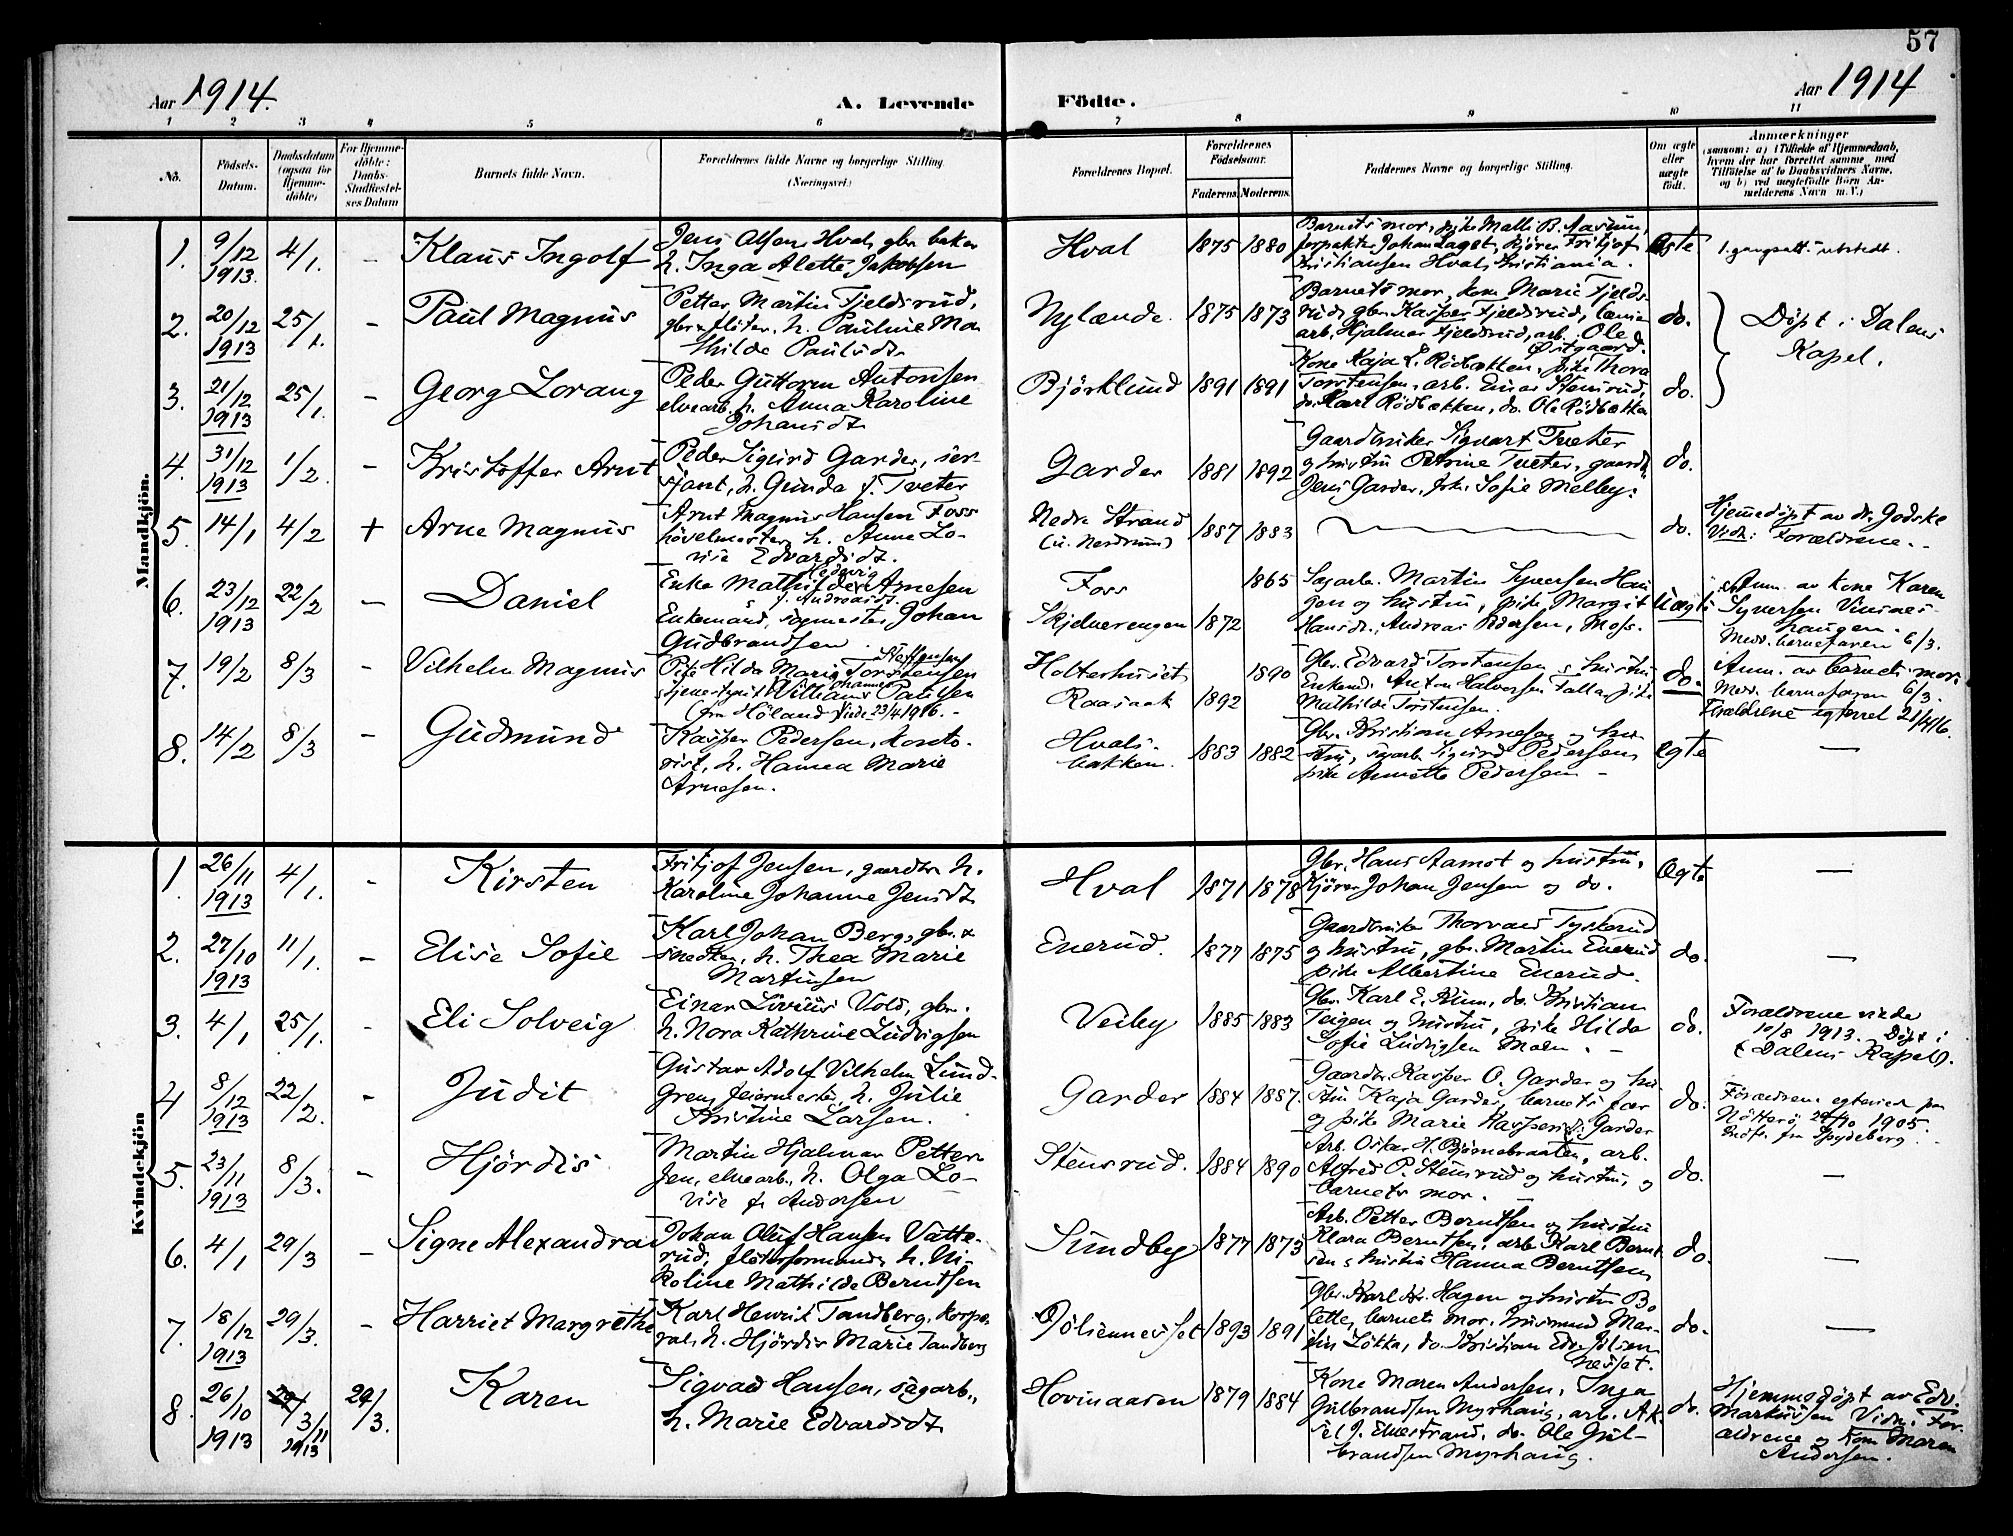 57
Aar 1914.
A. Levende
Fødte.
Aar 1914
1 2 3 4 5 6 7 8 9 10 11
No.
Fødsels-
Datum.
Daabsdatum
(ogsaa for
Hjemme-
døbte)
For Hjemme-
døbte:
Daabs-
Stadfæstel-
ses Datum
Barnets fulde Navn.
Forældrenes fulde Navne og borgerlige Stilling.
(Næringsvei.)
Forældrenes Bopæl.
Forældrenes
Fødselsaar.
Faderens. Moderens.
Faddernes Navne og borgerlige Stilling.
Om ægte
eller
uægte
født.
Anmærkninger
(saasom: a) i Tilfælde af Hjemmedaab,
hvem der har forrettet samme med
Tilføielse af to Daabsvidners Navne,
og b) ved uægtefødte Børn An-
melderens Navn m. V.)
Mandkjön.
1. 9/12 1913. 4/1. - Klaus Ingolf
Jens Olsen Hval, gbr. baker
h. Inga Alette Jakobsen
Hval 1875 1880
Barnets mor, pike Malli B. Aasrum,
forpakter Johan Laget, kjører Fritjof
Kristiansen Hval, Kristiania.
Ægte. 1. gangsatt. utstedt.
2. 20/12 1913 25/1. - Paul Magnus
Petter Martin Fjeldsrud,
gbr. & fløter, h. Pauline Ma-
thilde Paulsdt.
Nylænde. 1875 1873
Barnets mor, kone Marie Fjelds-
rud, gbr. Kasper Fjeldsrud,
arb. Hjalmar Fjeldsrud, arb. Ole
Østgaard.
do. Döpt i Dalens
Kapel.
3. 21/12 1913 25/1. - Georg Lorang
Peder Guttorm Antonsen
elvearb. h. Anna Karoline
Johansdt.
Björklund 1891 1891
Kone Kaja L. Rödbækken, pike Thora
Torstensen, arb. Einar Stensrud,
do. Karl Rödbækken, do. Ole Rödbækken
do.
4. 31/12 1913 1/2. - Kristoffer Arnt
Peder Sigurd Garder, ser-
sjant, h. Gunda f. Tveter
Garder 1881 1892
Gaardbruker Sigvart Tveter
og hustru Petrine Tveter, gaardb.
Jens Garder, frk. Sofie Melby.
do.
5. 14/1 4/2 + Arne Magnus
Arnt Magnus Hansen Foss
hövelmester, h. Anne Lo-
vise Edvardsdt.
Nedre Strand
(u. Nordrum) 1887 1883
do. Hjemedöpt av dr. Godske
Vidn: Forældrene.
6. 23/12 1913 22/2 - Daniel
Enke Mathilde Hedevig Arnesen
f. Andreasdt.
Enkemand, sagmester Johan
Gudbrandsen
Foss 1865
Skjelverengen 1872
Sagarb. Martin Syversen Hau-
gen og hustru, pike Margit
Hansdt., Andreas Pedersen, Moss.
Uægte Anm. av kone Karen
Syversen Vinsnes-
haugen.
Medd. barnefaren 6/3.
7. 19/2 8/3 - Vilhelm Magnus
Pike Hilda Marie Torstensen Steffensen
tjenestegut William Johannes Paulsen
(fra Höland) Viede 23/4 1916.
Holterhuset 1890
Raasaak 1892
Gbr. Edvard Torstensen & hustru,
Enkem. Anton Halvorsen Falla, pike
Mathilde Torstensen.
do. Anm. av barnets mor.
Medd. barnefaren 6/3.
Forældrene egteviet 21/4 1916.
8. 14/2 8/3 - Gudmund
Kasper Pedersen, konto-
rist, h. Hanna Marie
Arnesen.
Hvals-
bakken. 1883 1882
Gbr. Kristian Arnesen og hu-
stru, sagarb. Sigurd Pedersen,
pike Annette Pedersen
egte —
Kvindekjön
1. 26/11 1913 4/1. - Kirsten
Fritjof Jensen, gaardbr. h.
Karoline Johanne Jensdt.
Hval 1871 1878
Gbr. Hans Aamot og hustru,
Kjörer Johan Jensen og do.
Ægte —
2. 27/10 1913 11/1. - Elise Sofie
Karl Johan Berg, gbr. &
snedker, h. Thea Marie
Martinsen
Enerud. 1877 1875
Gaardbruker Thorvald Tyskerud
og hustru, gbr. Martin Enerud
pike Albertine Enerud.
do. —
3. 4/1 25/1. - Eli Solveig
Einar Liverius Vold, gbr.
h. Nora Kathrine Ludvigsen
Veiby 1885 1883
Gbr. Karl E. Ruun, do. Kristian
Teigen og hustru, pike Hilda
Sofie Ludvigsen Moen.
do. Forældrene viede
10/8 1913. Döpt i
(Dalens Kapel).
4. 8/12 1913 22/2. - Judit
Gustav Adolf Vilhelm Lund-
gren, feiermester, h. Julie
Kristine Larsen.
Garder 1884 1887.
Gaardbr. Kasper O. Garder og hu-
stru Kaja Garder, barnets far
og pike Marie Kaspersdt. Garder
do. Forældrene egteviet paa
Nötterö 29/10 1905.
Indfl. fra Spydeberg.
5. 23/11 1913 8/3. - Hjördis
Martin Hjalmar Petter-
sen, elvearb., h. Olga Lo-
vise f. Andersen
Stensrud. 1884 1890
Arb. Oskar H. Björnebraaten, arb.
Alfred P. Stensrud og hustru, og
barnets mor.
do. —
6. 4/1 29/3 - Signe Alexandra
Johan Oluf Hansen Vatte-
rud, flöterformand, h. Ni-
koline Mathilde Berntsen
Sundby 1877 1873
Arb. Petter Berntsen og hustru
Klara Berntsen, arb. Karl Bernt-
sen & hustru Hanna Berntsen,
do. —
7. 18/12 1913 29/3. - Harriet Margrethe
Karl Henrik Tandberg, korpo-
ral, h. Hjördis Marie Tandberg
Jölsennesset 1893 1891
Gbr. Karl Kr. Hagen og hustru Bo-
lette, barnets mor, husmand Mar-
tin Lökka, do. Kristian Edv. Jölsen-
nesset.
do. —
8. 26/10 1913 29/3 /11 1913 29/3. Karen
Sigvad Hansen, sagarb.,
h. Marie Edvardsdt.
Hovinaasen 1879 1884
Kone Maren Andersen, Inga
Gulbrandsen Myrhaug, arb. Ak-
sel J. Elvestrand, do. Ole Gul-
brandsen Myrhaug.
do. Hjemmedöpt av Edv.
Markussen Vidn. For-
ældrene og Kone Maren
Andersen.